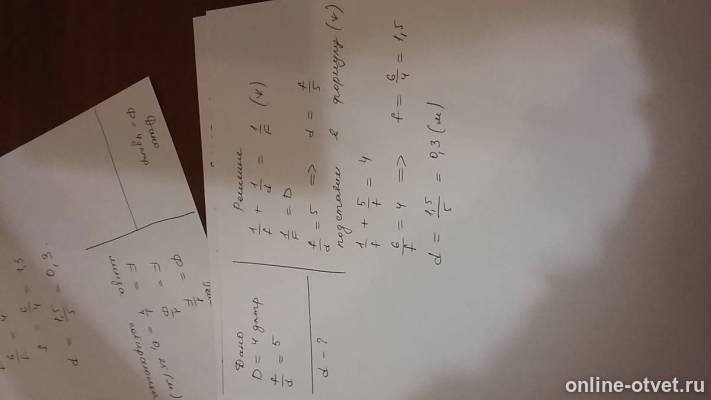 Дано
D = 4 дптр
f/d = 5
d - ?
Решение
1/f + 1/d = 1/F (*)
1/F = D
f/d = 5 => d = f/5
подставим в формулу (*)
1/f + 5/f = 4
6/f = 4 => f = 6/4 = 1,5
d = 1,5/5 = 0,3 (м)
Дано
Ф = 4 дптр
Ф = 1/F
F = 1/Ф
F = 1/4 = 0,25 (м)
линза
6/f = 4
f = 6/4 = 1,5
d = 1,5/5 = 0,3.
online-otvet.ru